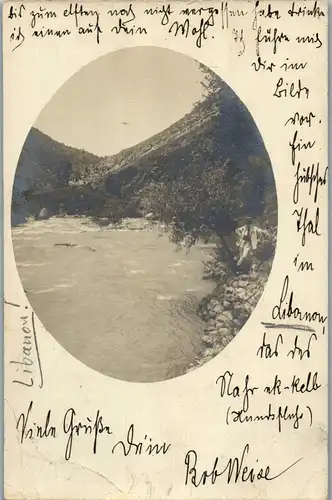 bis zum elften noch nicht vergessen habe trinke
ich einen auf Dein Wohl. Ich führe mit
Dir im
Bilde
vor.
Ein
hübsches
Thal
im
Libanon,
das des
Nahr ek-kelb
(Hundsfluß)
Viele Grüße Dein
Bob Weise
Libanon!